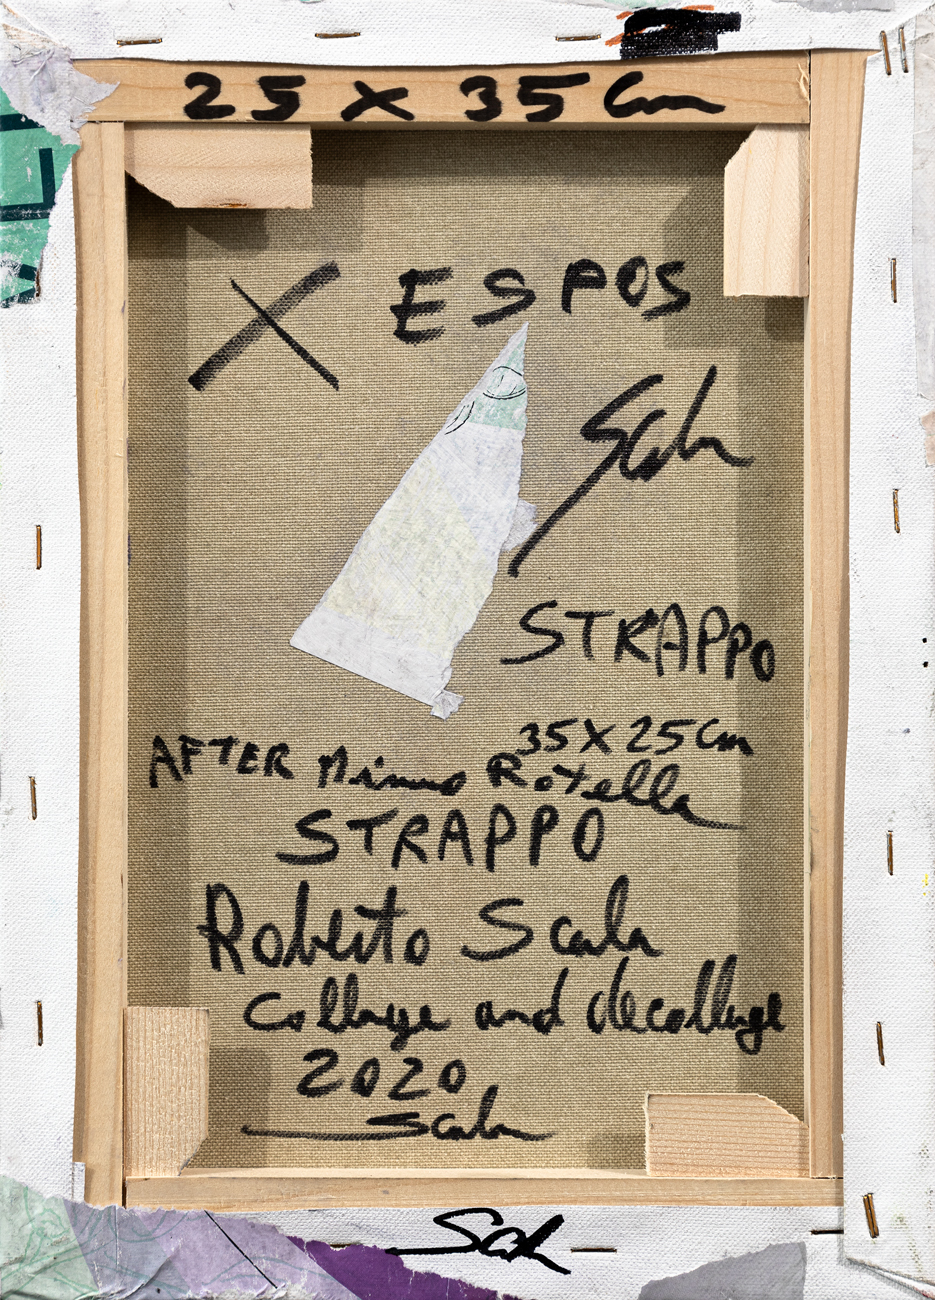 25 X 35 Cm
X ESPOS
Scala
STRAPPO
35 X 25 Cm
AFTER Mimmo Rotella
STRAPPO
Roberto Scala
Collage and decollage
2020
Scala
Scala